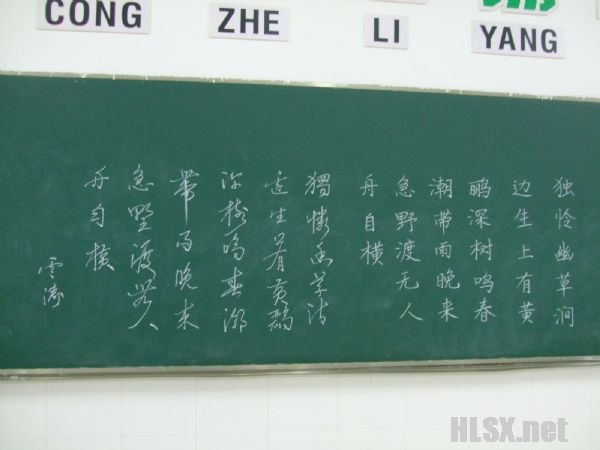 CONG ZHE LI YANG
独怜幽草涧
边生上有黄
鹂深树鸣春
潮带雨晚来
急野渡无人
舟自横
獨憐幽草澗
邊生上有黃鸝
深樹鳴春潮
帶雨晚来
急野渡無人
舟自横
雲濤
HLSX.net